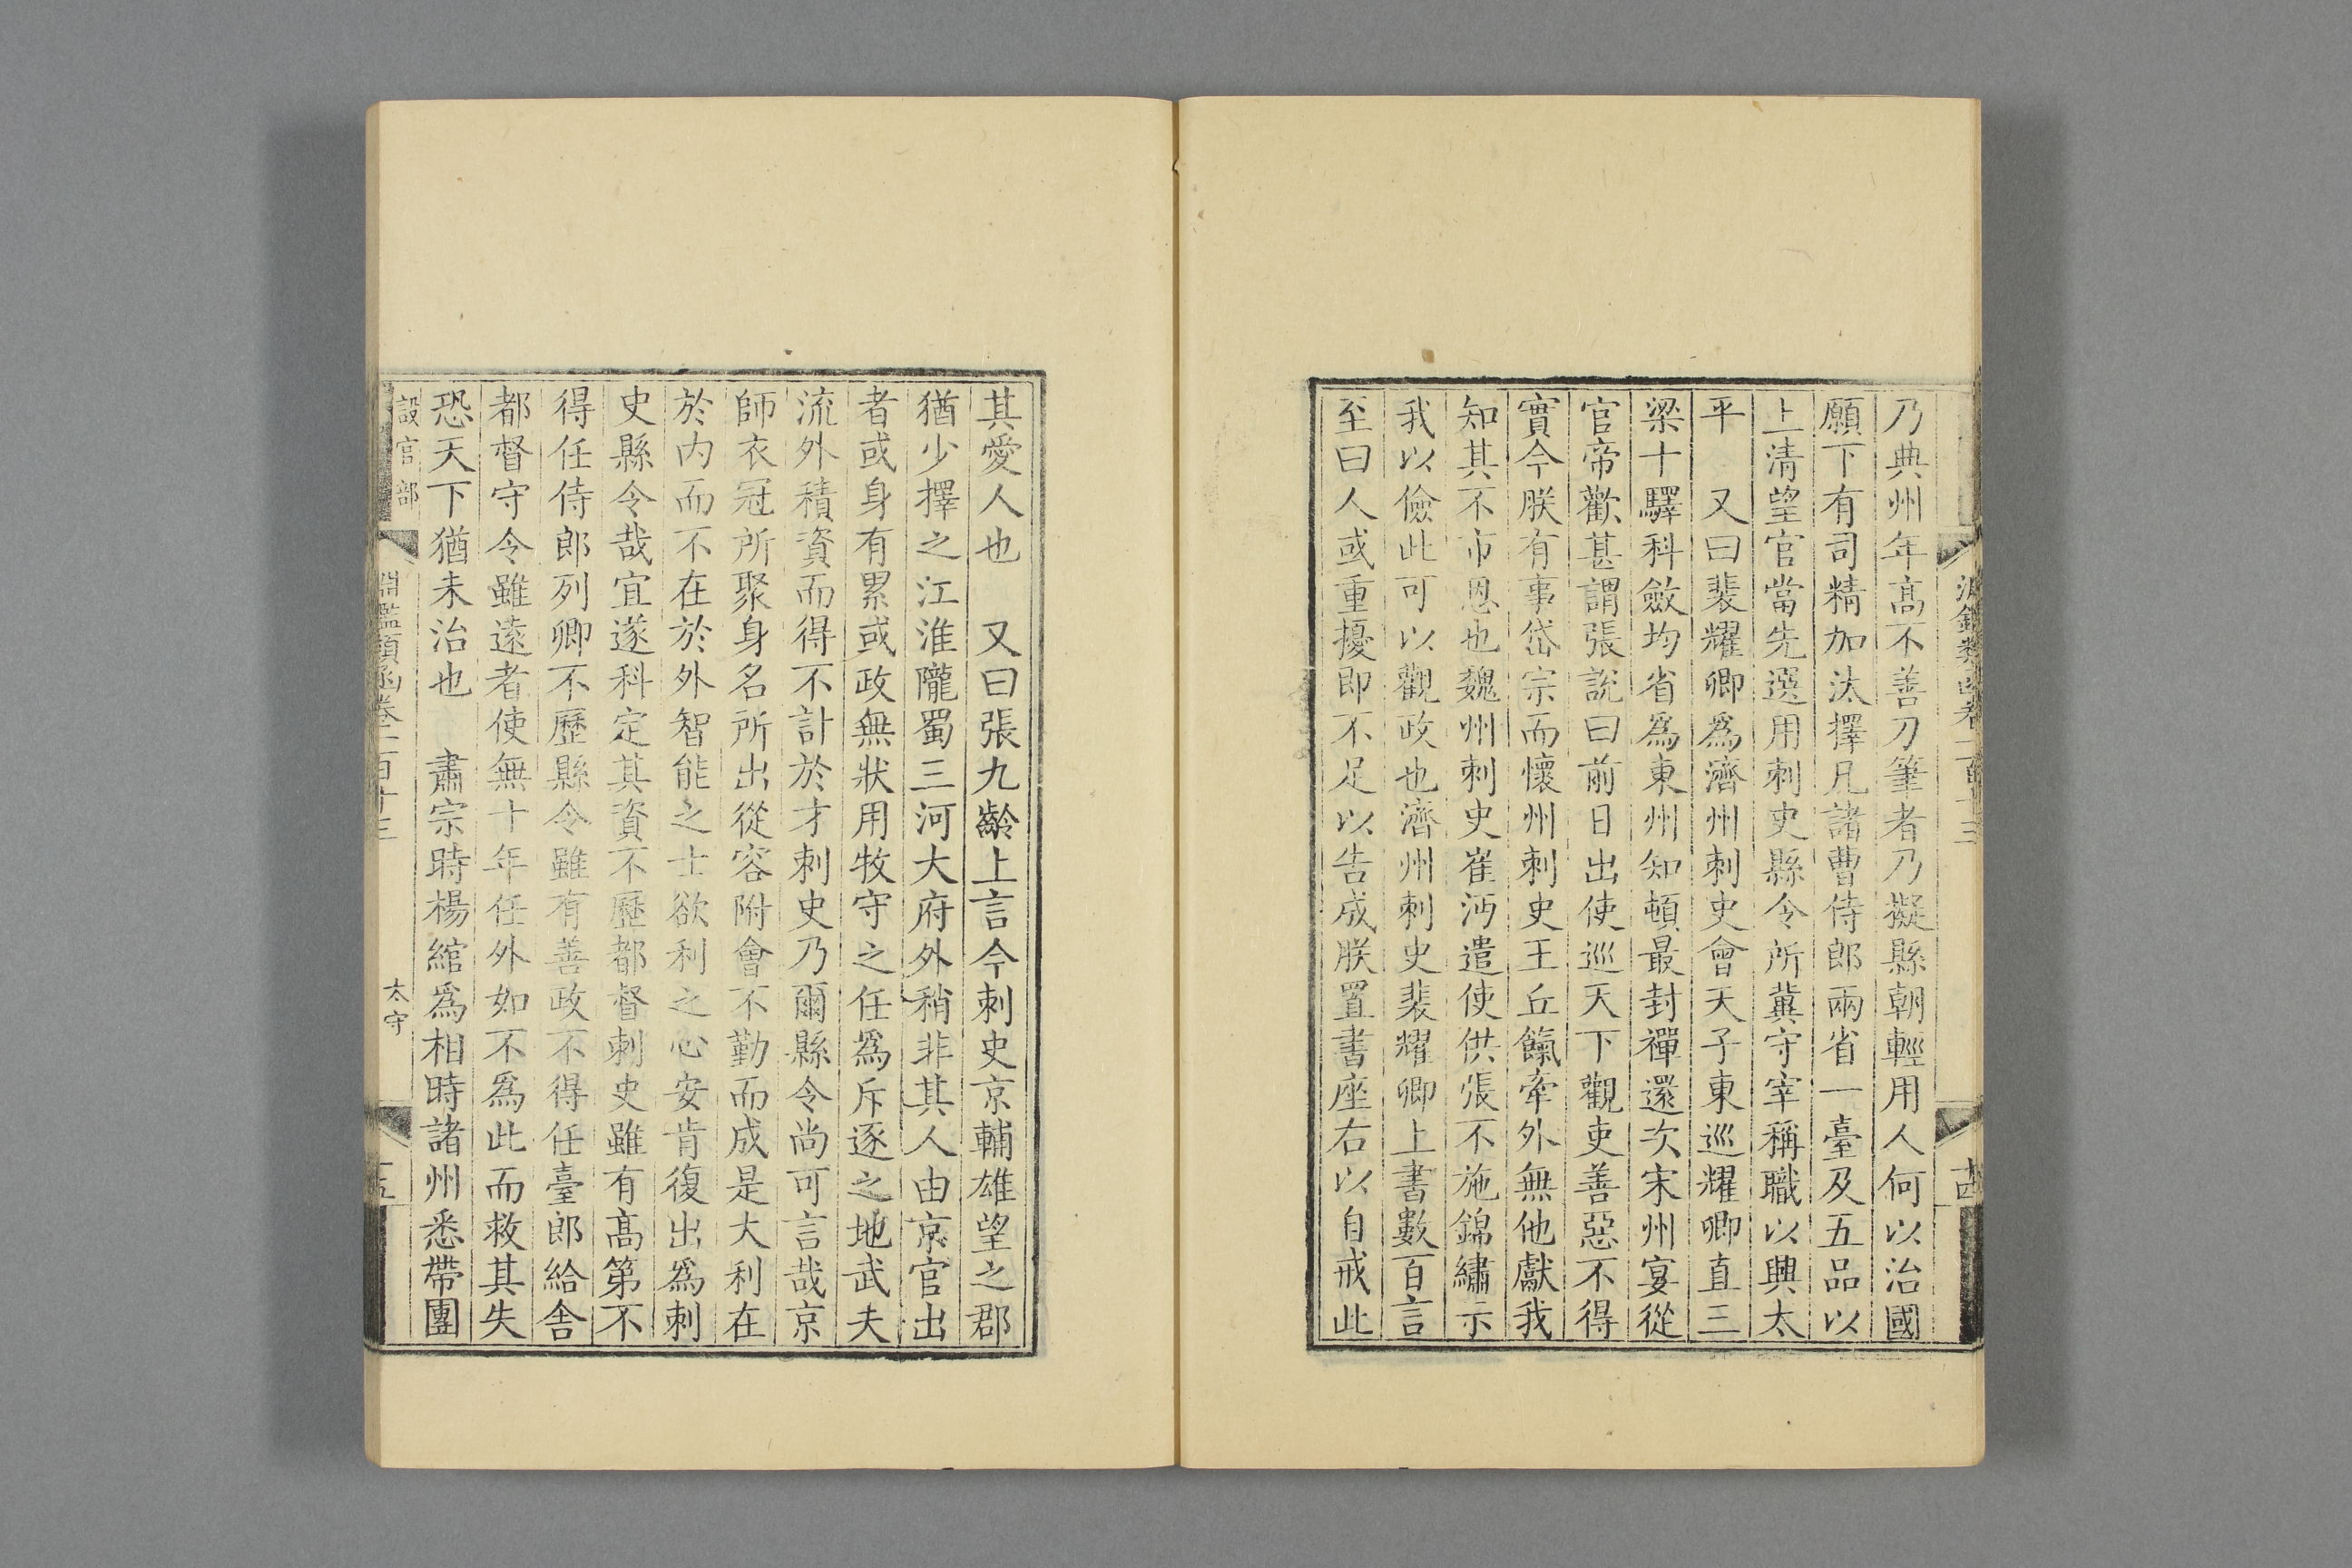 乃典州年高不善刀筆者乃擬縣朝輕用人何以治國
願下有司精加汰擇凡諸曹侍郎兩省一臺及五品以
上清望官當先選用刺史縣令所冀守宰稱職以興太
平　又曰裴耀卿爲濟州刺史會天子東巡耀卿直三
梁十驛科斂均省爲東州知頓最封禪還次宋州宴從
官帝歡甚謂張說曰前日出使巡天下觀吏善惡不得
實今朕有事岱宗而懷州刺史王丘餼牽外無他獻我
知其不市恩也魏州刺史崔沔遣使供張不施錦繡示
我以儉此可以觀政也濟州刺史裴耀卿上書數百言
至曰人或重擾即不足以告成朕置書座右以自戒此
其愛人也　又曰張九齡上言今刺史京輔雄望之郡
猶少擇之江淮隴蜀三河大府外稍非其人由京官出
者或身有累或政無狀用牧守之任爲斥逐之地武夫
流外積資而得不計於才刺史乃爾縣令尚可言哉京
師衣冠所聚身名所出從容附會不勤而成是大利在
於内而不在於外智能之士欲利之心安肯復出爲刺
史縣令哉宜遂科定其資不歷都督刺史雖有高第不
得任侍郎列卿不歷縣令雖有善政不得任臺郎給舍
都督守令雖遠者使無十年任外如不爲此而救其失
恐天下猶未治也　肅宗時楊綰爲相時諸州悉帶團
設官部
淵鑑類函卷一百十三
太守